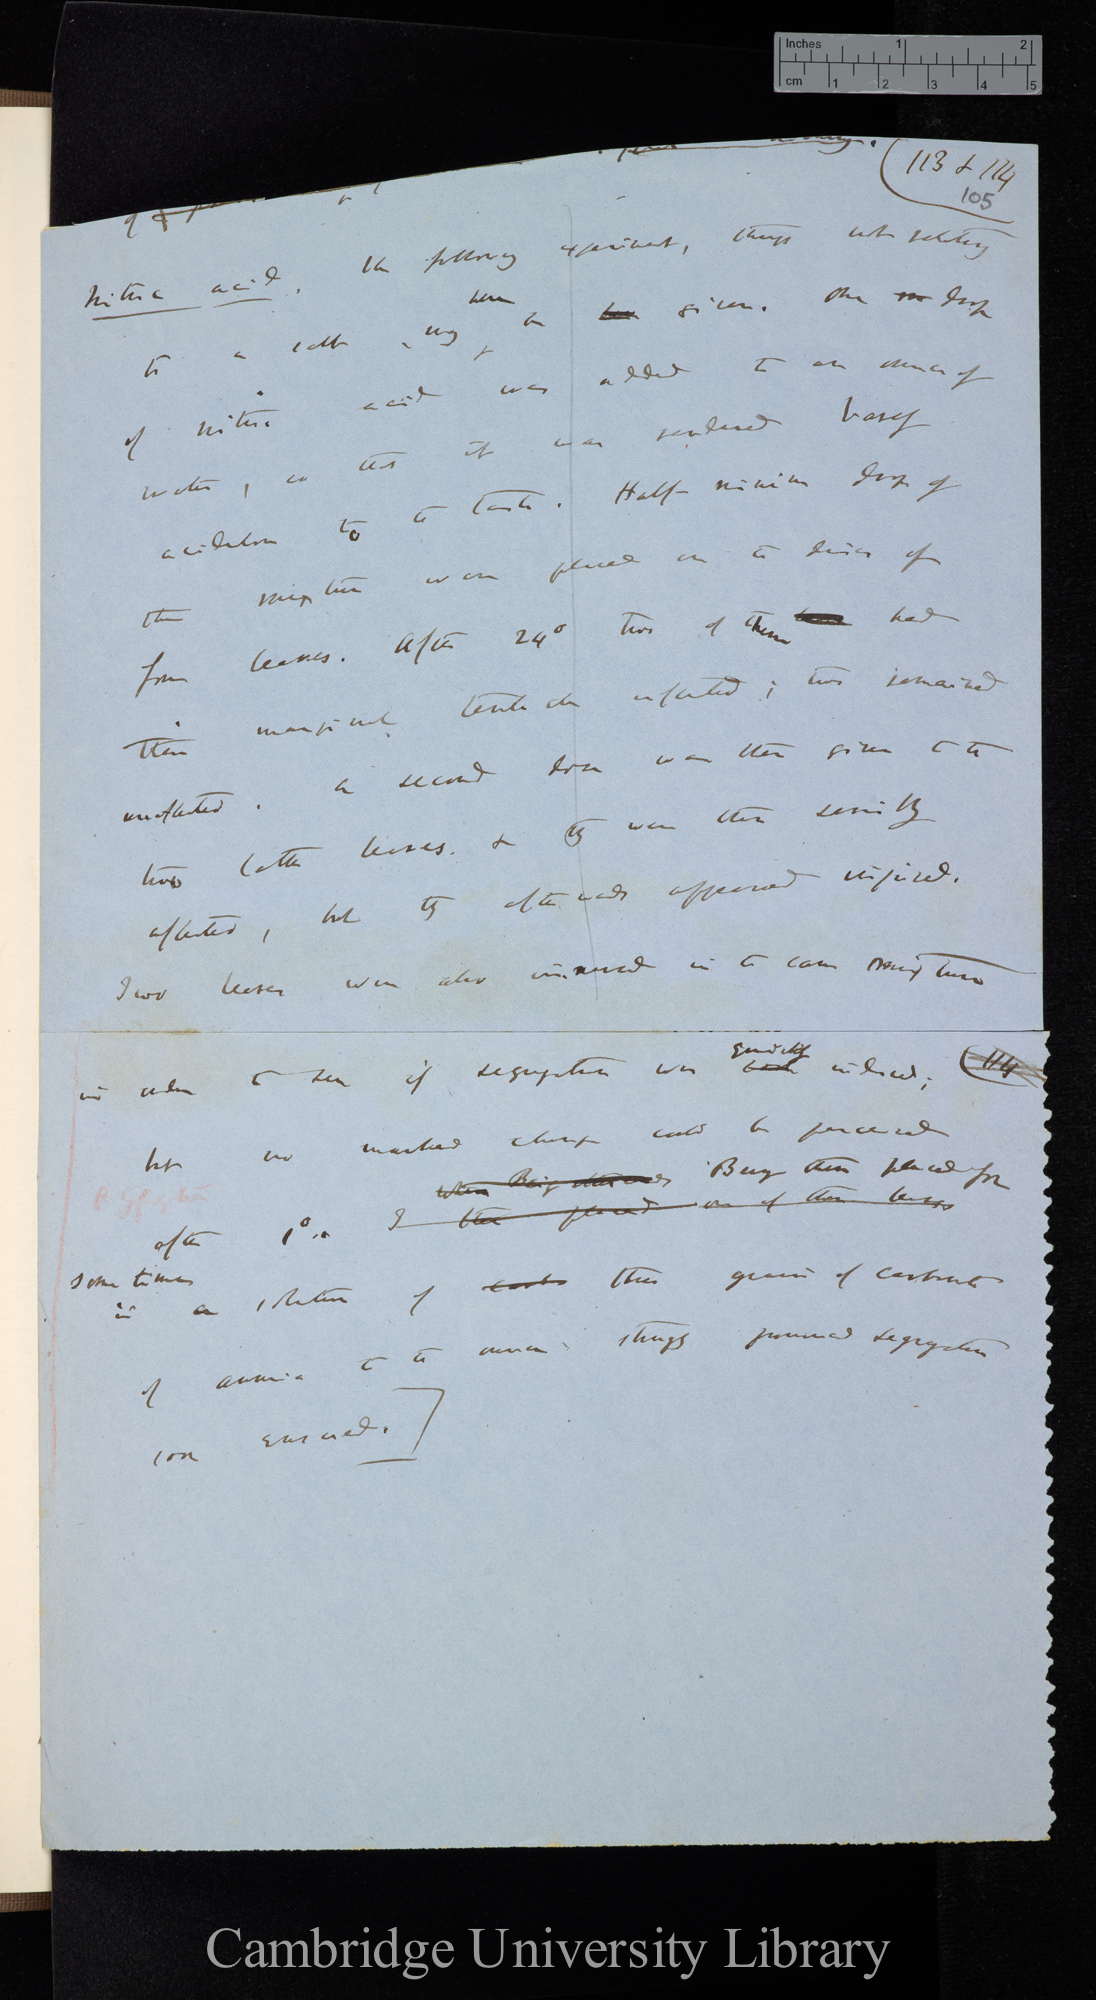 Inches 1 2
cm 1 2 3 4 5
113 & 114
105
Nitric acid. The following experiment, though not relating
here
to a salt may be given. One drop
of nitric acid was added to an ounce of
water, so that it was rendered barely
acidulous to the taste. Half-minim drops of
this mixture were placed on the discs of
four leaves. After 24° two of them had
their marginal tentacles inflected; two remained
unaffected. A second dose was then given to the
two latter leaves. & they were then sensibly
affected, but they afterwards appeared injured.
Two leaves were also immersed in the same mixture
114
quickly
in order to see if segregation was induced;
but no marked change could be perceived
when Being afterwards Being then placed for
after 1°. I then placed one of these leaves
some time
in a solution of three grains of carbonate
of ammonia to the ounce strongly pronounced segregation
soon ensued.
Cambridge University Library